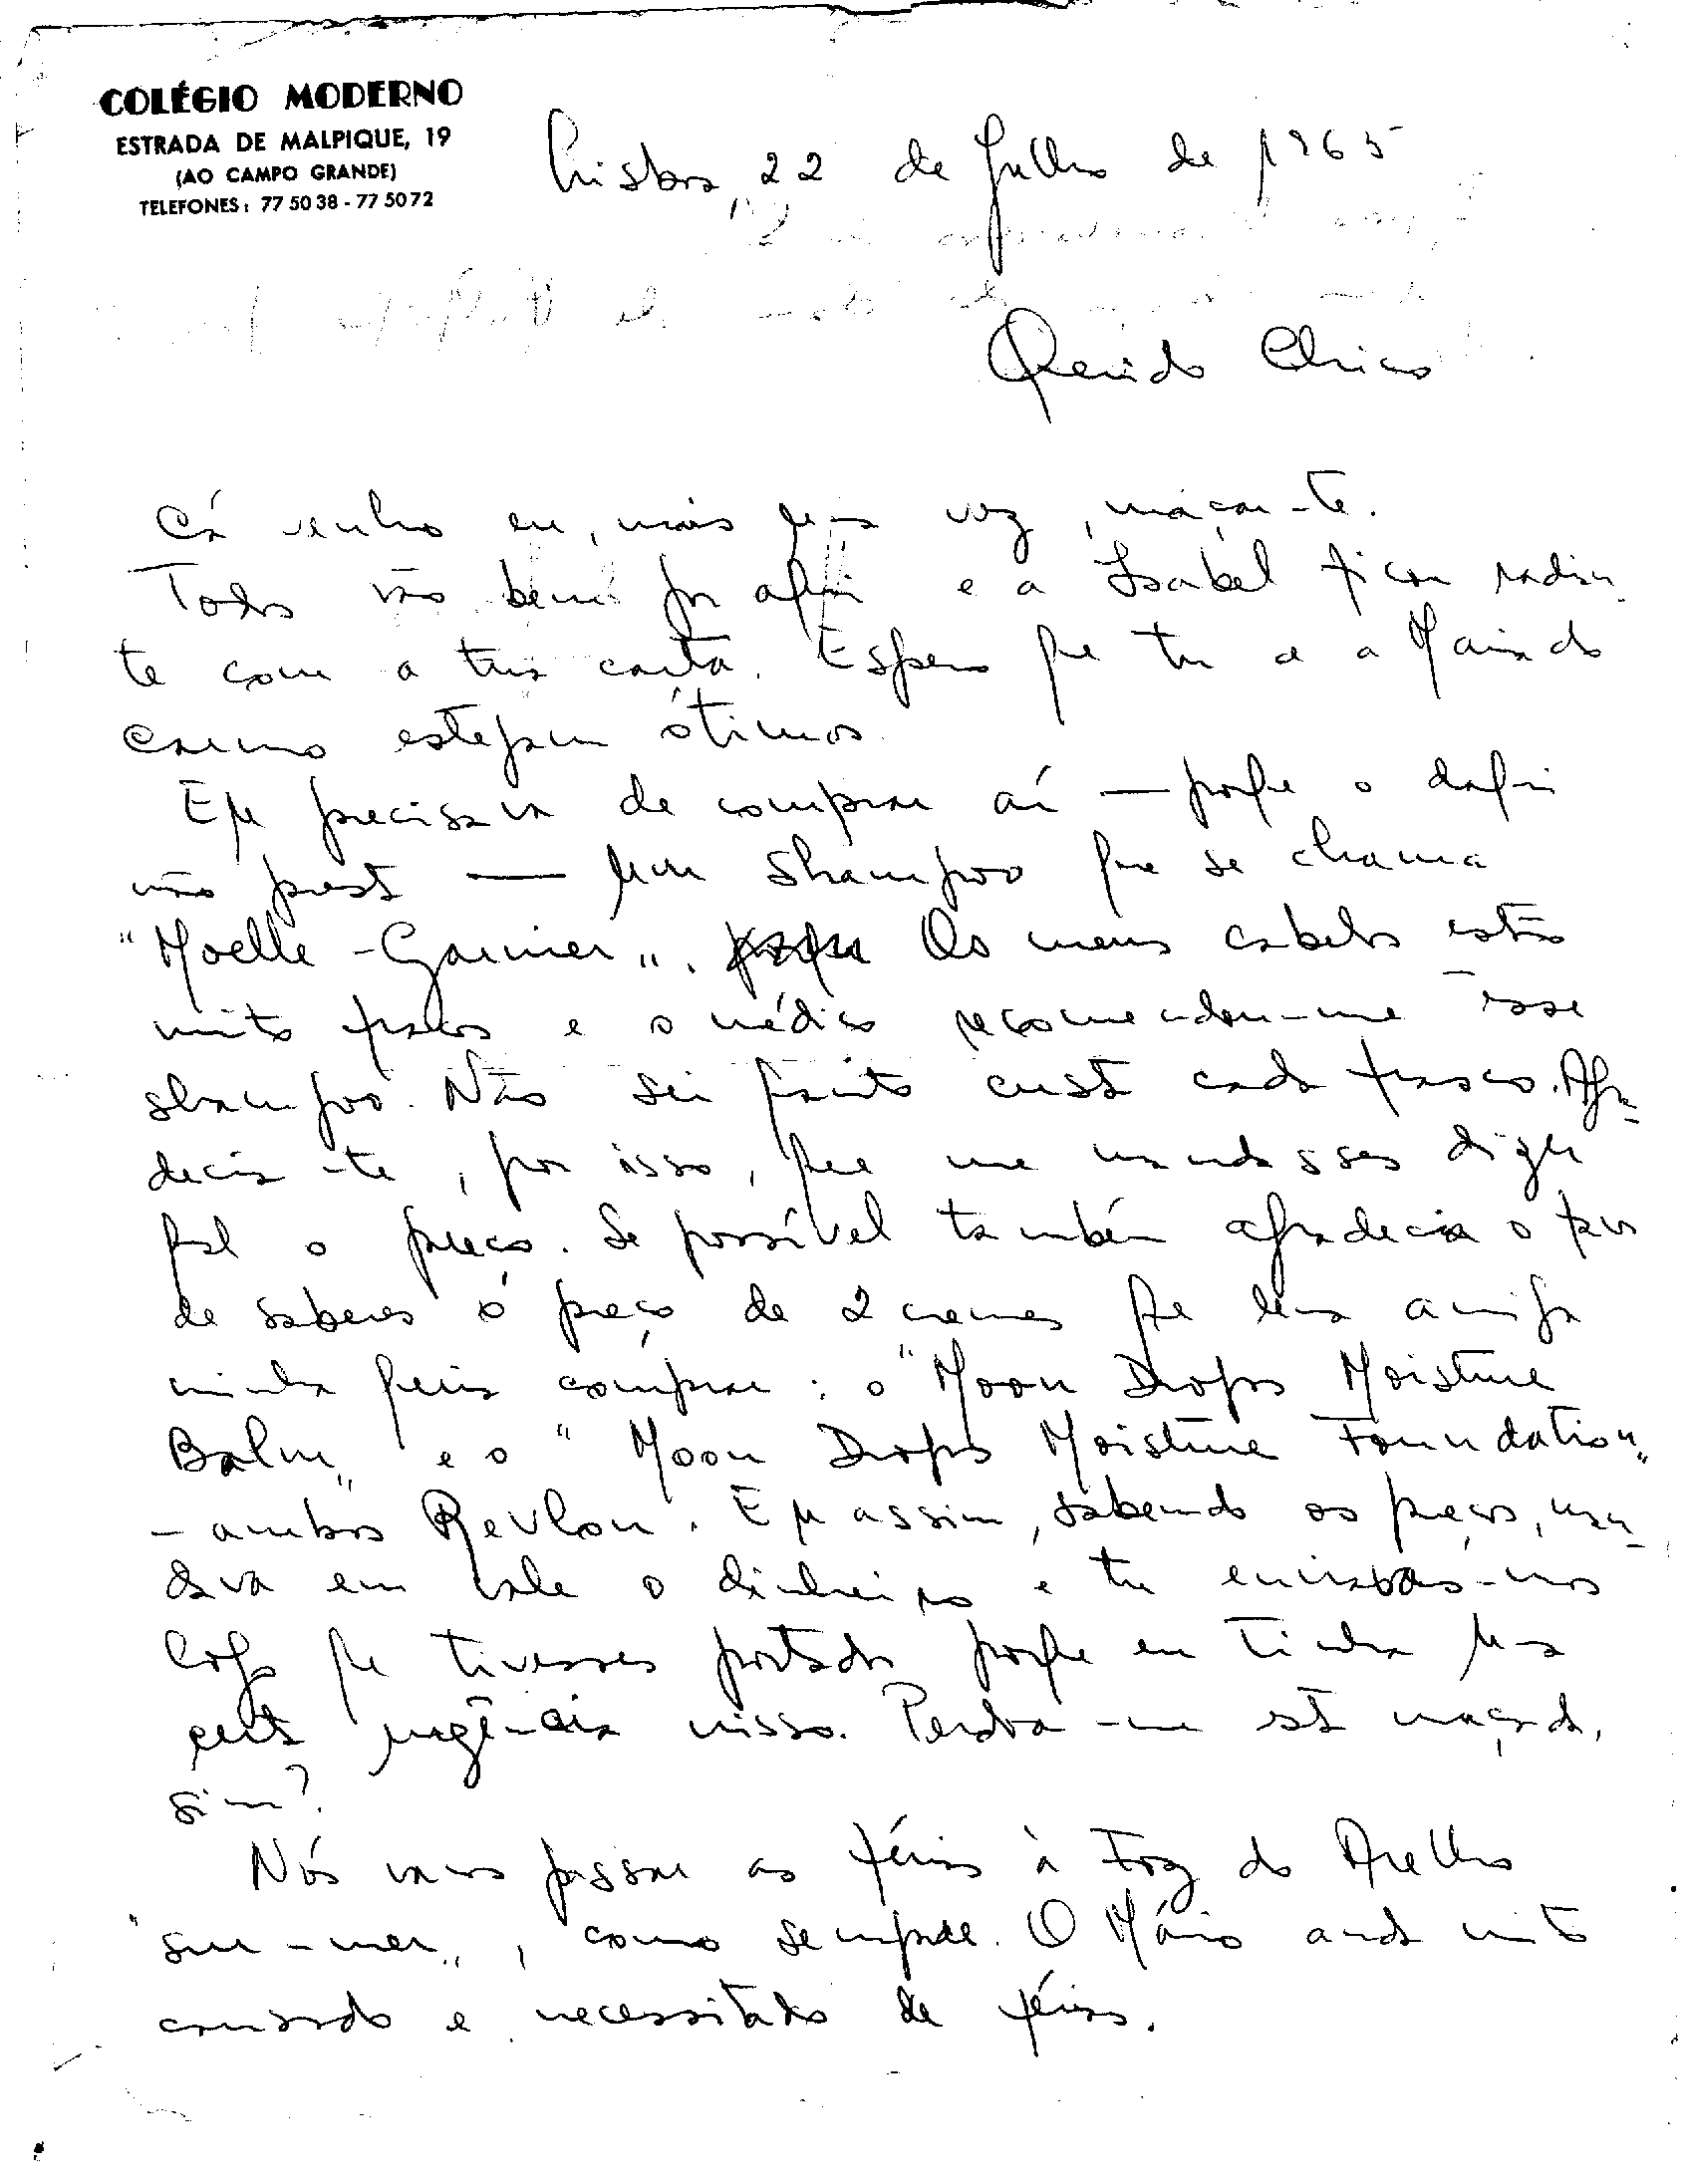 COLÉGIO MODERNO
ESTRADA DE MALPIQUE, 19
(AO CAMPO GRANDE)
TELEFONES: 77 50 38 - 77 50 72
Lisboa, 22 de Julho de 1965
Querido Chico
Cá venho eu, mais uma vez, maçar-te.
Todos vão bem por aqui e a Isabel ficou radian-
te com a tua carta. Espero que tu e a Maria do
Carmo estejam ótimos.
É que precisava de comprar aí — porque o daqui
não presta — um shampoo que se chama
"Moelle-Garnier". Os meus cabelos estão
muito fracos e o médico recomendou-me esse
shampoo. Não sei quanto custa cada frasco. Agra-
decia-te, por isso, que me mandasses dizer
qual o preço. Se possível também agradecia o favor
de saberes o preço de 2 cremes que uma amiga
minha queria comprar: o "Moon Drops Moisture
Balm" e o "Moon Drops Moisture Foundation"
- ambos Revlon. É que assim, sabendo os preços, man-
dava em vale o dinheiro e tu enviavas-nos
logo que tivesses portador porque eu tinha uma
certa urgência nisso. Perdoa-me esta maçada,
sim?
Nós vamos passar as férias à Foz do Arelho
"sur-mer", como sempre. O Mário anda muito
cansado e necessitado de férias.